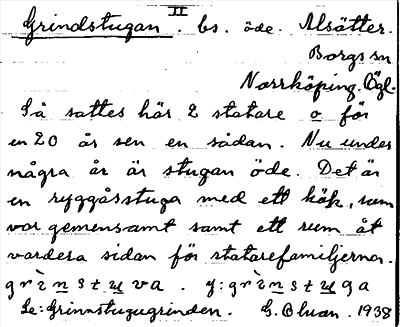 II
Grindstugan. bs. öde. Alsätter.
Borgs sn
Norrköping. Ögl.
Så sattes här 2 statare o för
en 20 år sen en sådan. Nu under
några år är stugan öde. Det är
en ryggåsstuga med ett kök, som
var gemensamt samt ett rum åt
vardera sidan för statarefamiljerna.
grìnstuva. y: grìnstuga
Se: Grinnstugugrinden. G. 1938